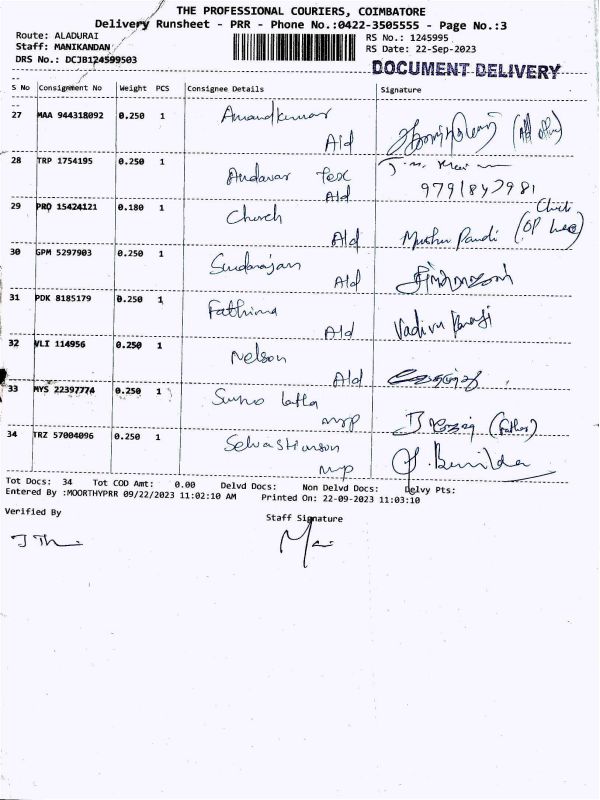 THE PROFESSIONAL COURIERS, COIMBATORE
Delivery Runsheet - PRR - Phone No.:0422-3505555 - Page No.:3
Route: ALADURAI RS No.: 1245995
Staff: MANIKANDAN RS Date: 22-Sep-2023
DRS No.: DCJB124599503
DOCUMENT DELIVERY
S No Consignment No Weight PCS Consignee Details Signature
27 MAA 944318092 0.250 1 Anandkumar
Ald
28 TRP 1754195 0.250 1 Andavar Tex
Ald 9791842981
29 PRO 15424121 0.180 1 Church
Ald Muthu Pandi
30 GPM 5297903 0.250 1 Sundarajan
Ald
31 PDK 8185179 0.250 1 Fathima
Ald
32 VLI 114956 0.250 1 Nelson
Ald
33 MYS 22397774 0.250 1
(Father)
34 TRZ 57004096 0.250 1
Tot Docs: 34 Tot COD Amt: 0.00 Delvd Docs: Non Delvd Docs: Delvy Pts:
Entered By :MOORTHYPRR 09/22/2023 11:02:10 AM Printed On: 22-09-2023 11:03:10
Verified By Staff Signature